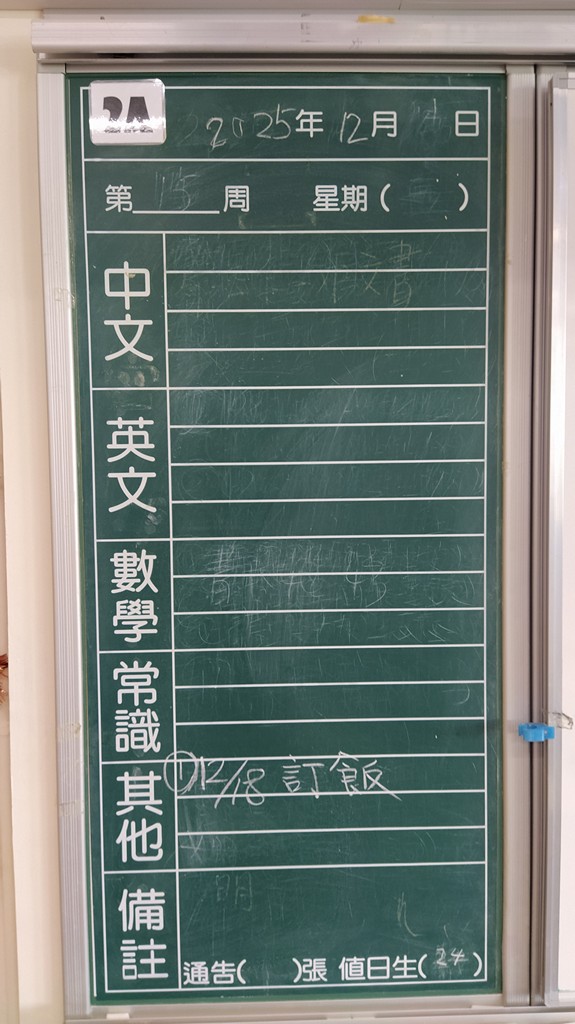 2A
2025年12月 日
第15周 星期( )
中文
英文
數學
常識
其他 ①12/18 訂飯
備註
通告( )張 值日生(24)